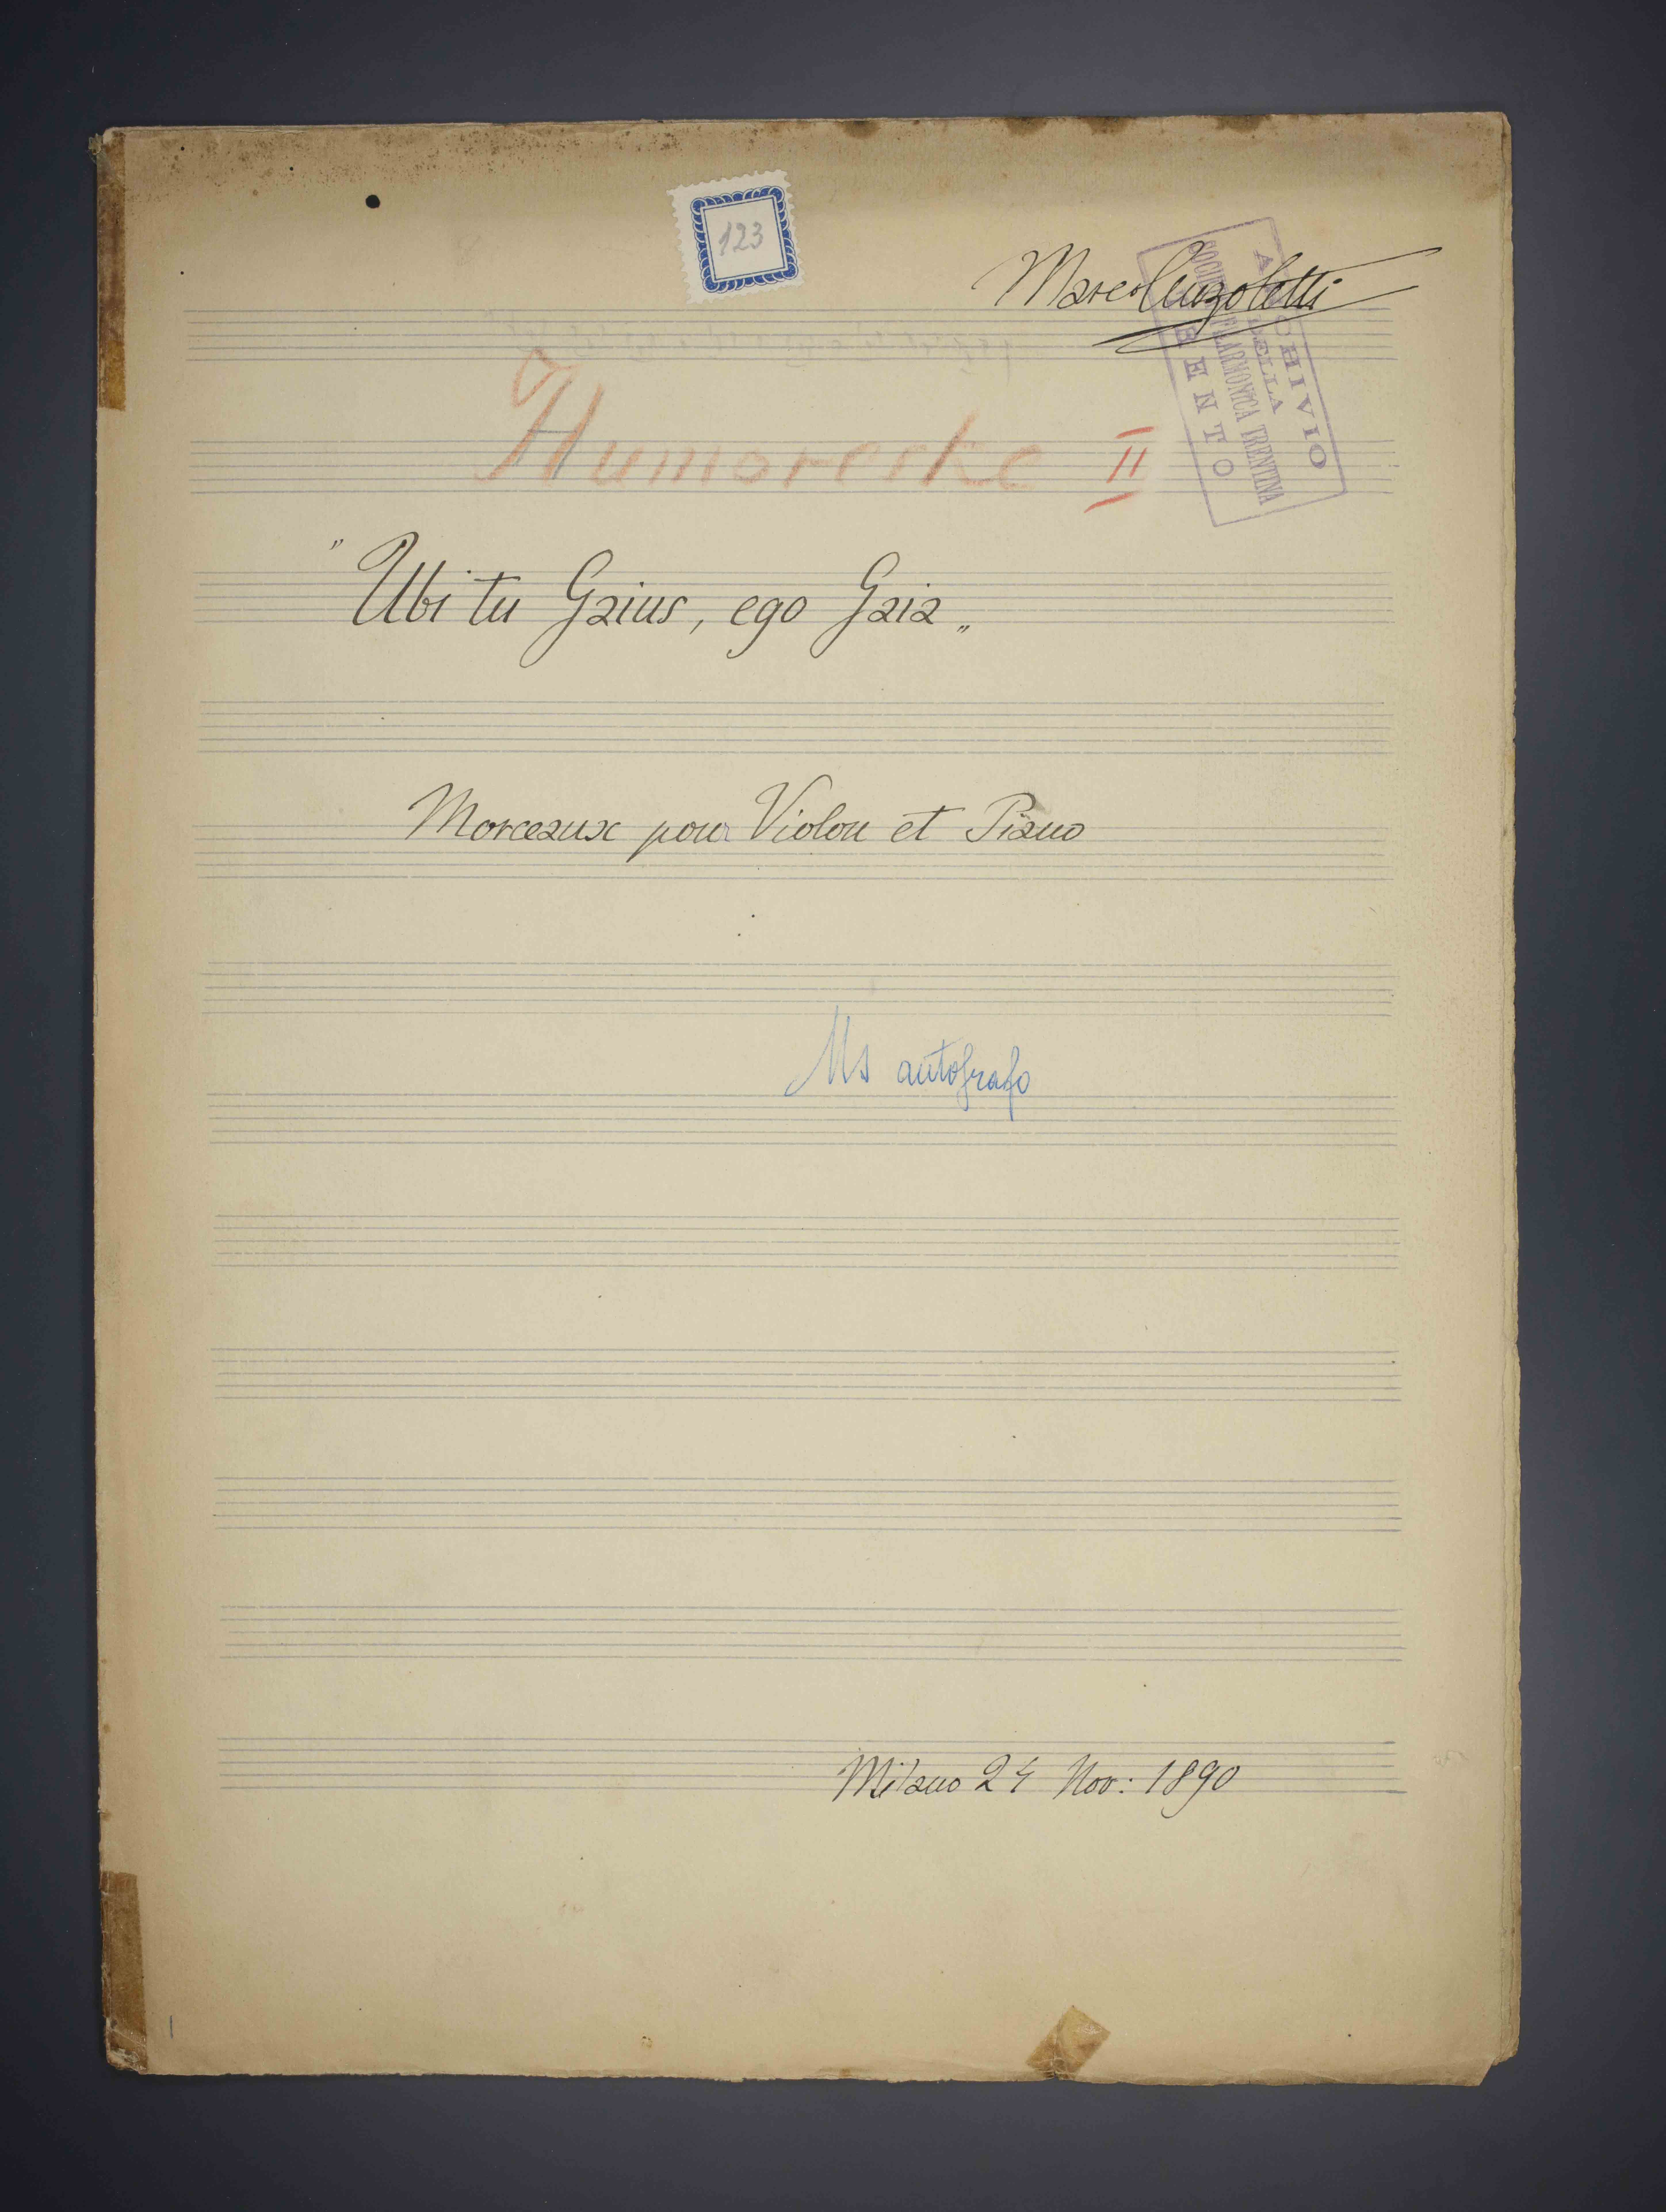 123
Marco Anzoletti
ARCHIVIO
DELLA
SOCIETÀ FILARMONICA TRENTINA
TRENTO
Humoreske II
"Ubi tu Gaius, ego Gaia„
Morceaux pour Violon et Piano
Ms autografo
Milano 24 Nov: 1890